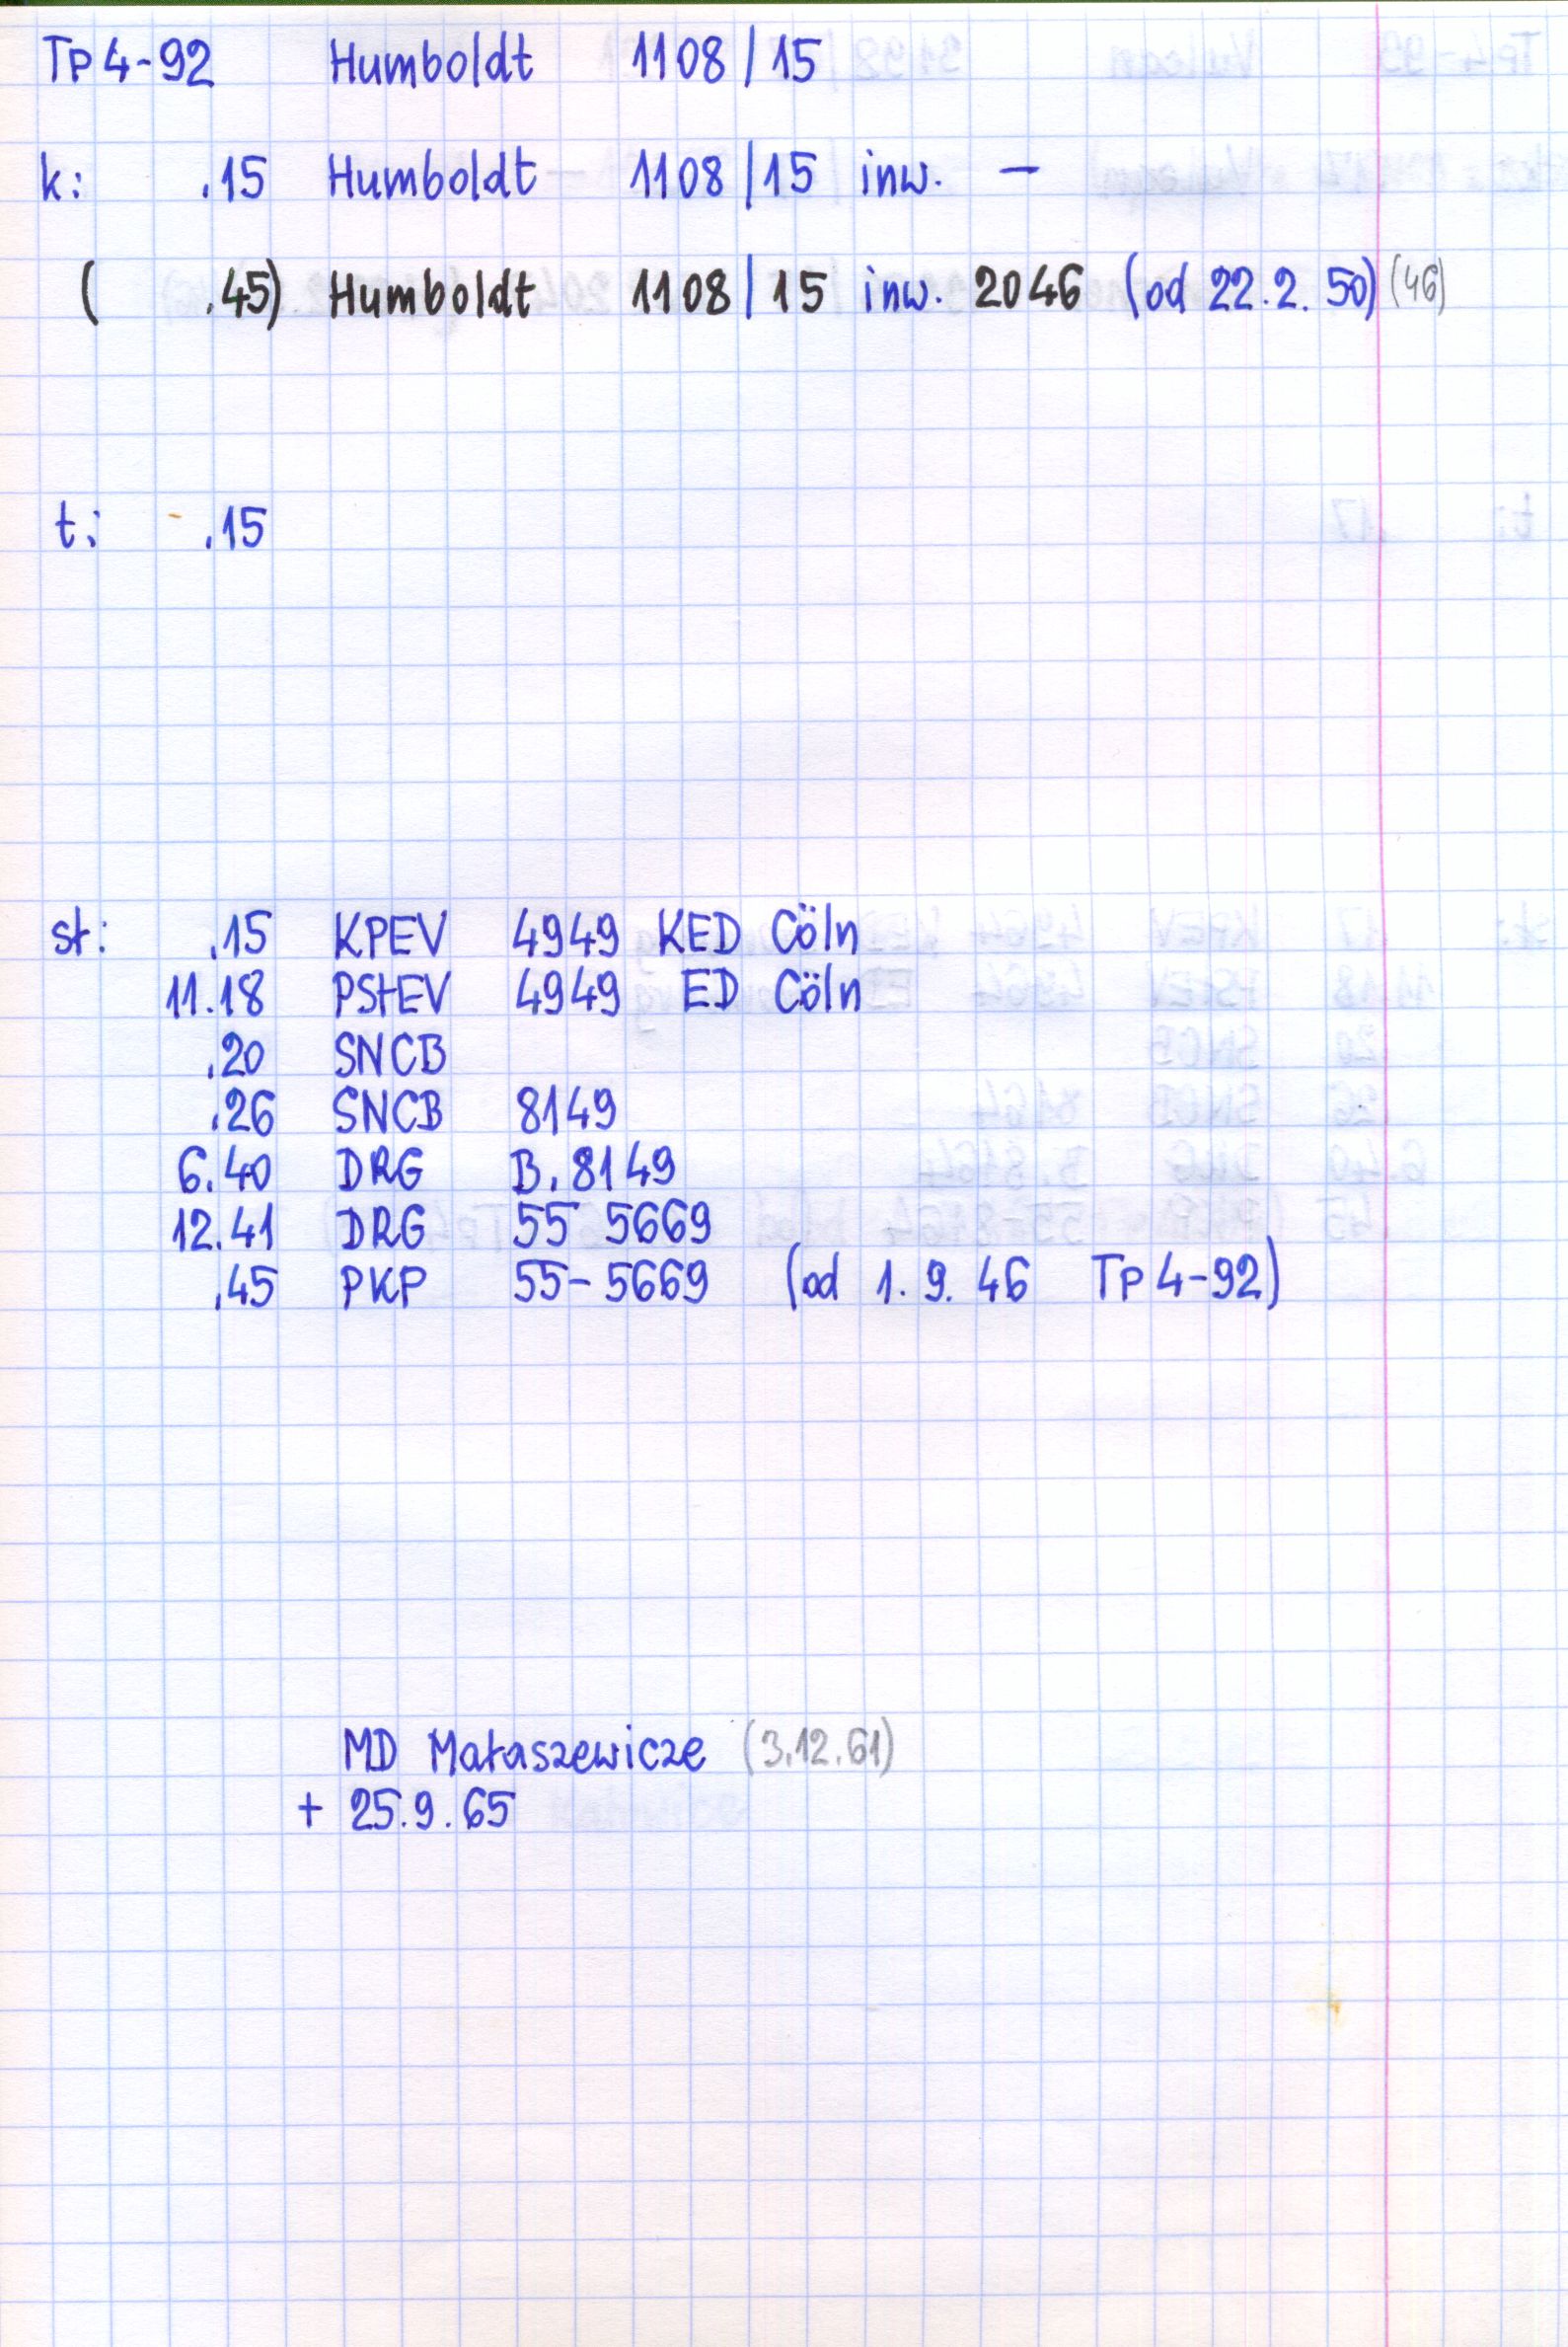 Tp4-92 Humboldt 1108/15
k: .15 Humboldt 1108/15 inw. –
( .45) Humboldt 1108/15 inw. 2046 (od 22.2.50) (46)
t: .15
st: .15 KPEV 4949 KED Cöln
11.18 PStEV 4949 ED Cöln
.20 SNCB
.26 SNCB 8149
6.40 DRG B.8149
12.41 DRG 55 5669
.45 PKP 55-5669 (od 1.9.46 Tp4-92)
MD Małaszewicze (3.12.61)
+ 25.9.65